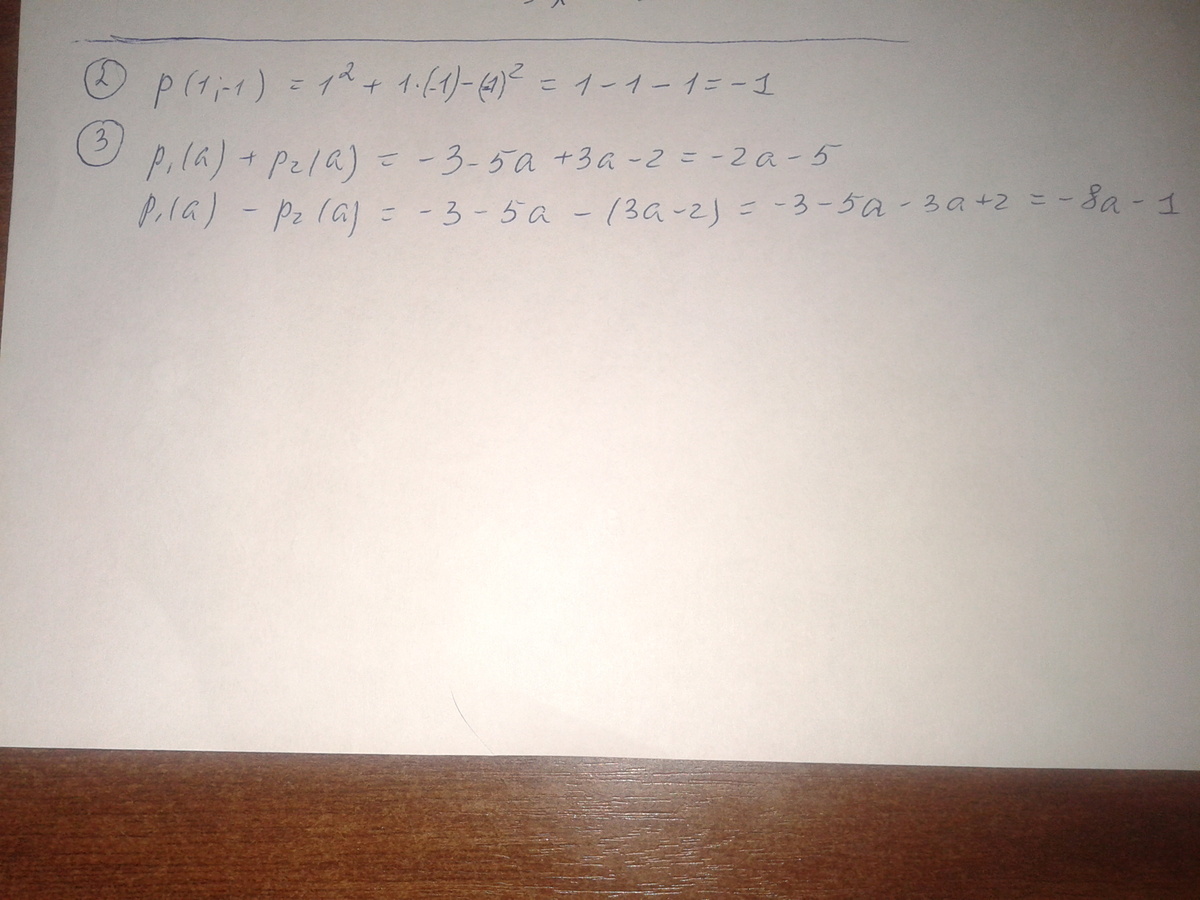 ② p(1;-1) = 1² + 1·(-1)-(-1)² = 1-1-1=-1
③ p₁(a) + p₂(a) = -3-5a+3a-2=-2a-5
p₁(a) - p₂(a) = -3-5a-(3a-2)=-3-5a-3a+2=-8a-1